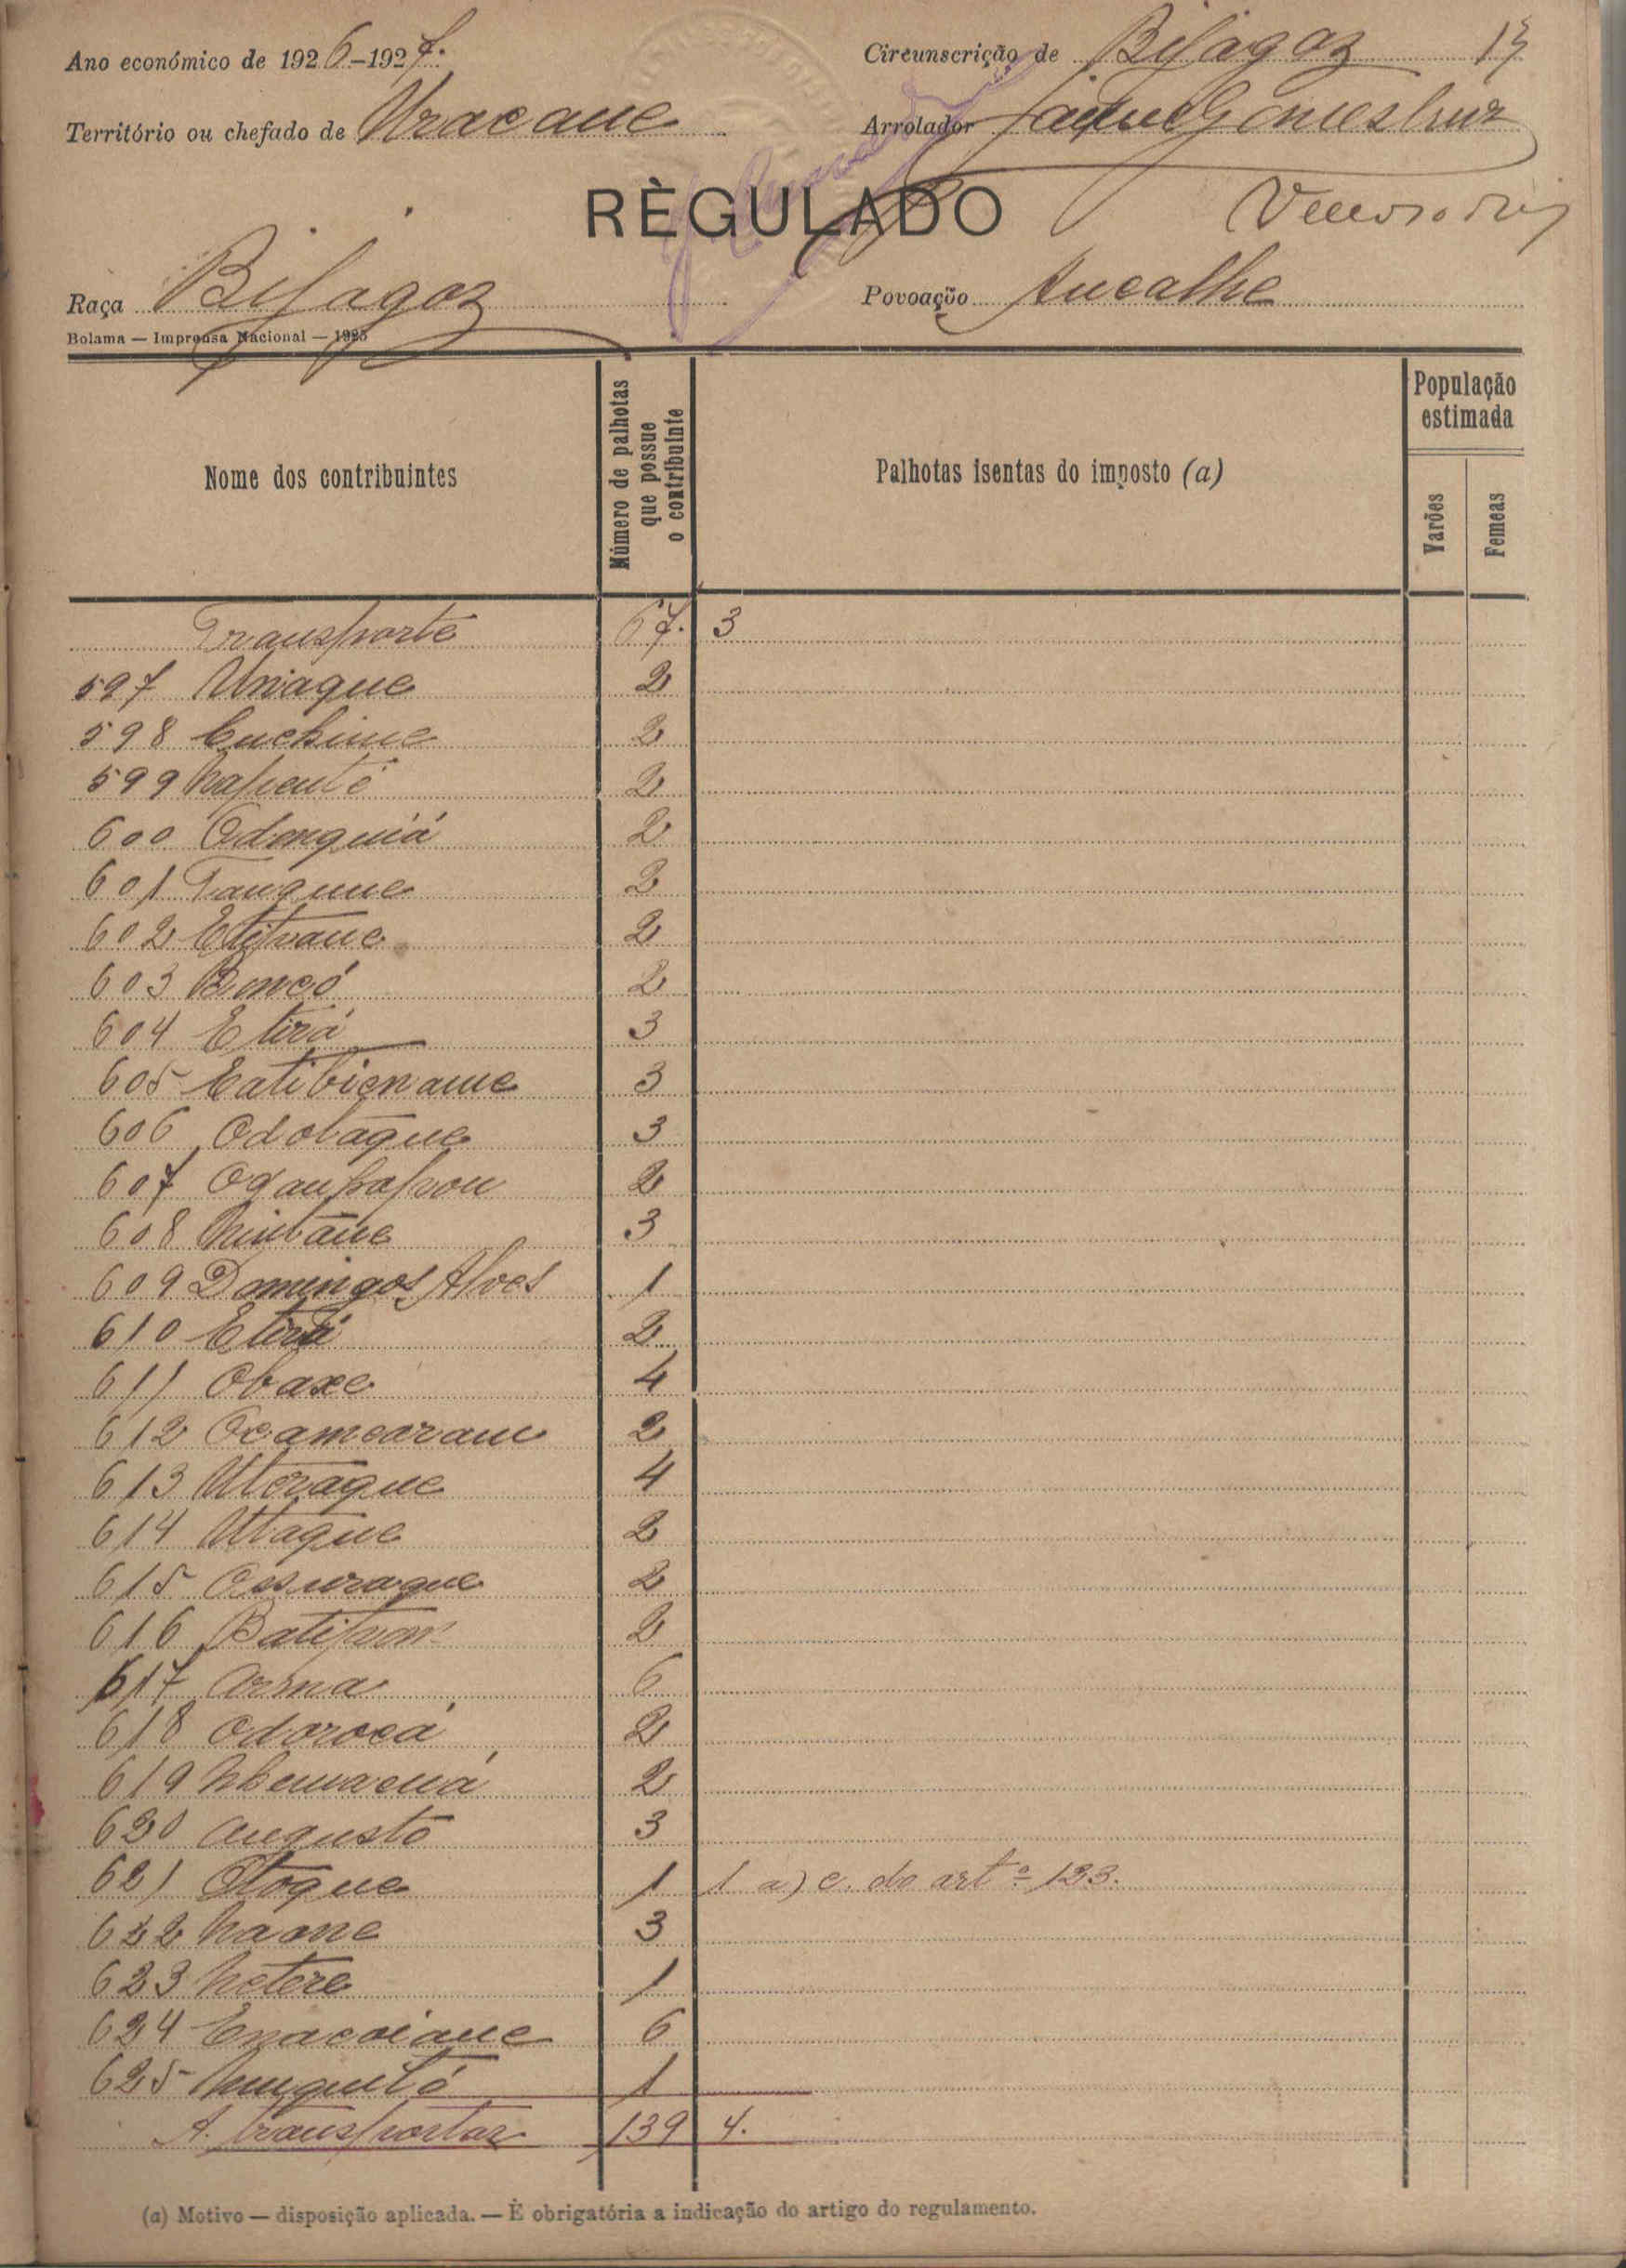 Ano económico de 1926-1927.
Circunscrição de Bijagoz 13
Território ou chefado de Uracane
Arrolador Jaime Gomes Cruz
RÈGULADO
Raça Bijagoz
Povoação Ancalhe
Bolama — Imprensa Nacional — 1925
Nome dos contribuintes
Número de palhotas que possue o contribuinte
Palhotas isentas do imposto (a)
População estimada
Varões
Femeas
Transporte 67. 3
597 Uniaque 2
598 Cuchime 2
599 2
600 Odenquiá 2
601 Tanqune 2
602 2
603 Boncó 2
604 Etirá 3
605 Catibiename 3
606 Odobaque 3
607 2
608 3
609 Domingos Alves 1
610 Etirá 2
611 Obaxe 4
612 Ocamcaram 2
613 Uteraque 4
614 Utaque 2
615 Ossuraque 2
616 2
617 Orena 6
618 Odorocá 2
619 2
620 Augusto 3
621 Otoque 1 1 a) c. do artº 133.
622 Naone 3
623 Netere 1
624 Enacoiane 6
625 1
A transportar 139 4.
(a) Motivo — disposição aplicada. — É obrigatória a indicação do artigo do regulamento.